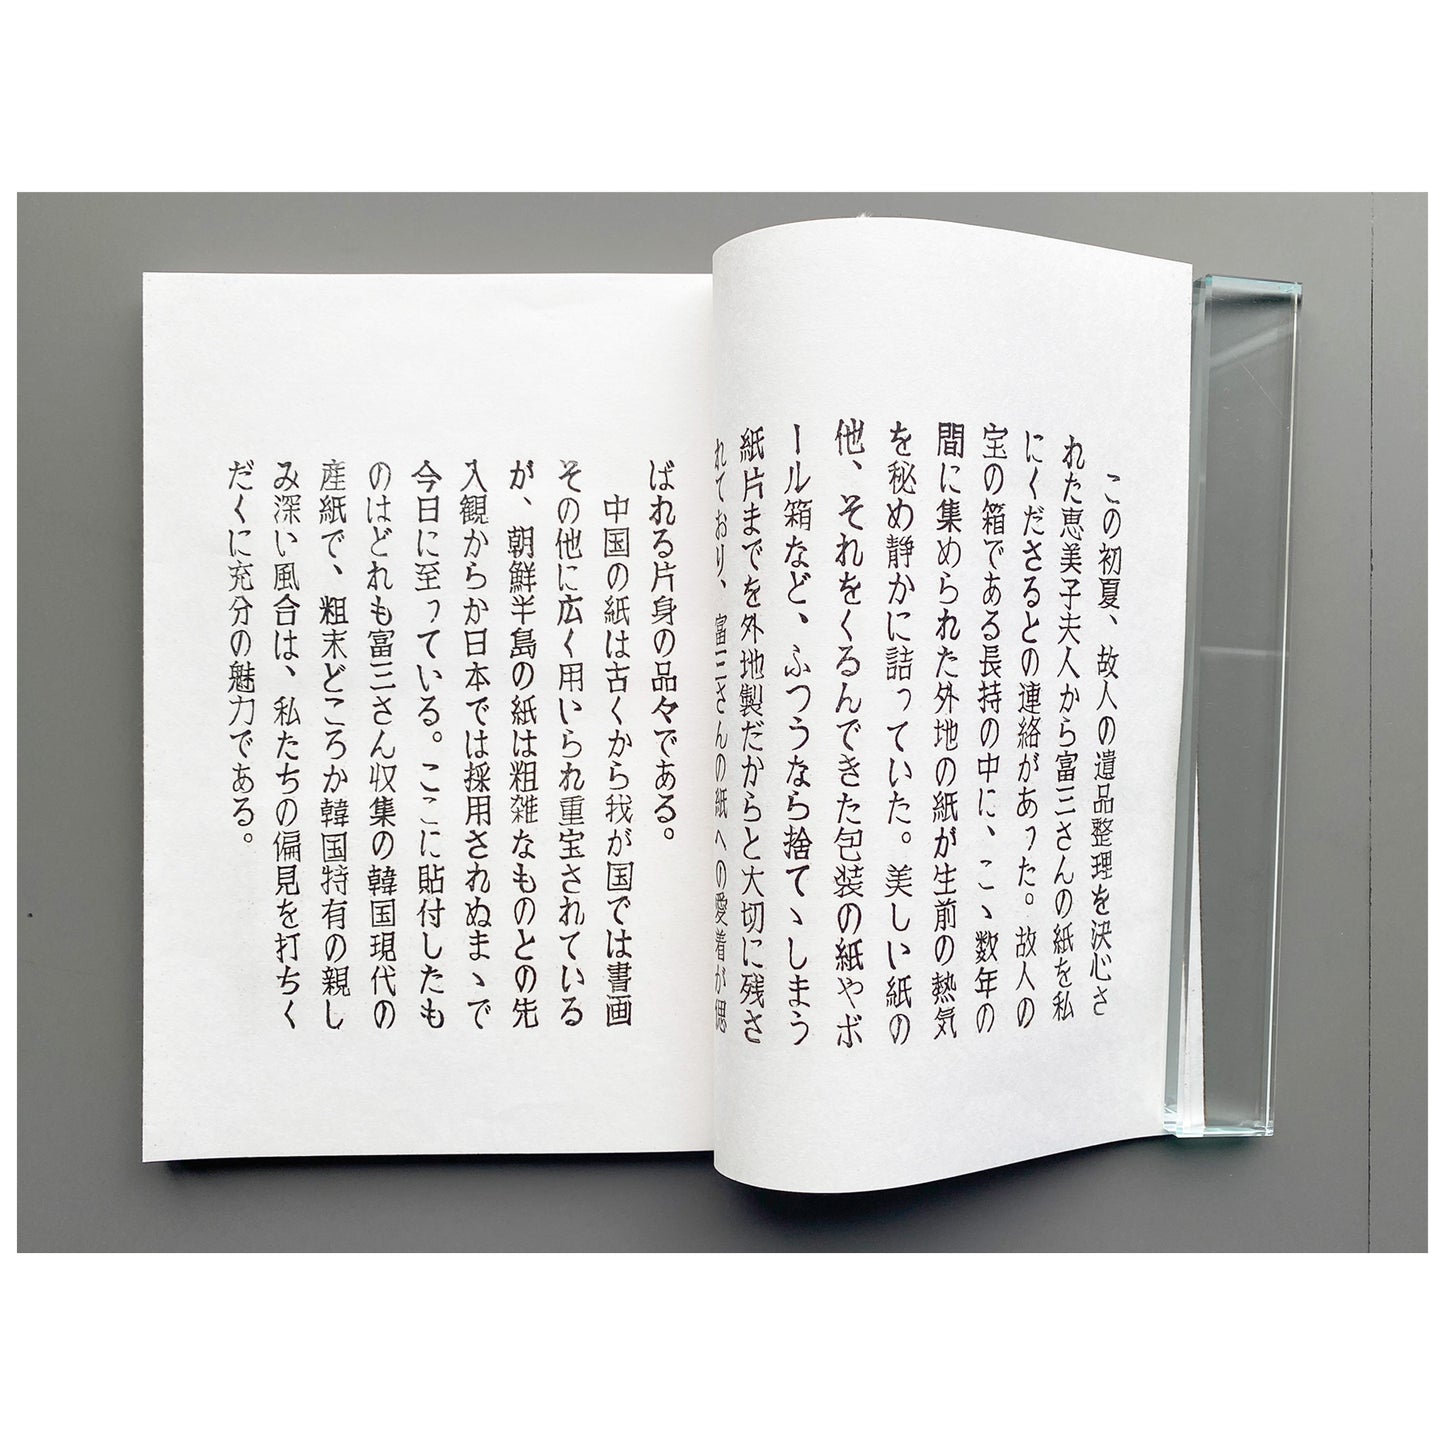 この初夏、故人の遺品整理を決心さ
れた恵美子夫人から富三さんの紙を私
にくださるとの連絡があった。故人の
宝の箱である長持の中に、こゝ数年の
間に集められた外地の紙が生前の熱気
を秘め静かに詰っていた。美しい紙の
他、それをくるんできた包装の紙やボ
ール箱など、ふつうなら捨てゝしまう
紙片までを外地製だからと大切に残さ
れており、富三さんの紙への愛着が偲
ばれる片身の品々である。
中国の紙は古くから我が国では書画
その他に広く用いられ重宝されている
が、朝鮮半島の紙は粗雑なものとの先
入観からか日本では採用されぬまゝで
今日に至っている。こゝに貼付したも
のはどれも富三さん収集の韓国現代の
産紙で、粗末どころか韓国特有の親し
み深い風合は、私たちの偏見を打ちく
だくに充分の魅力である。